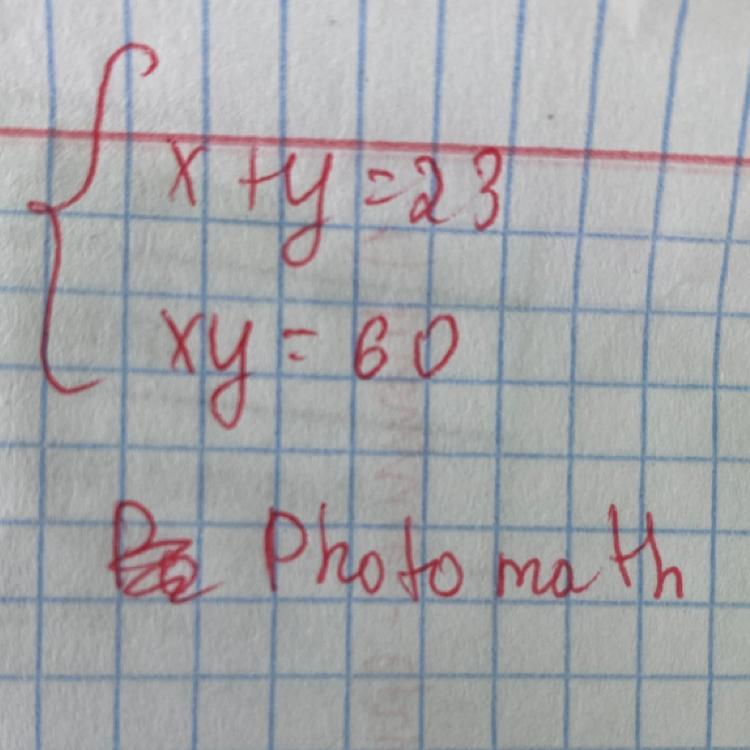 x + y = 23
xy = 60
Photo math